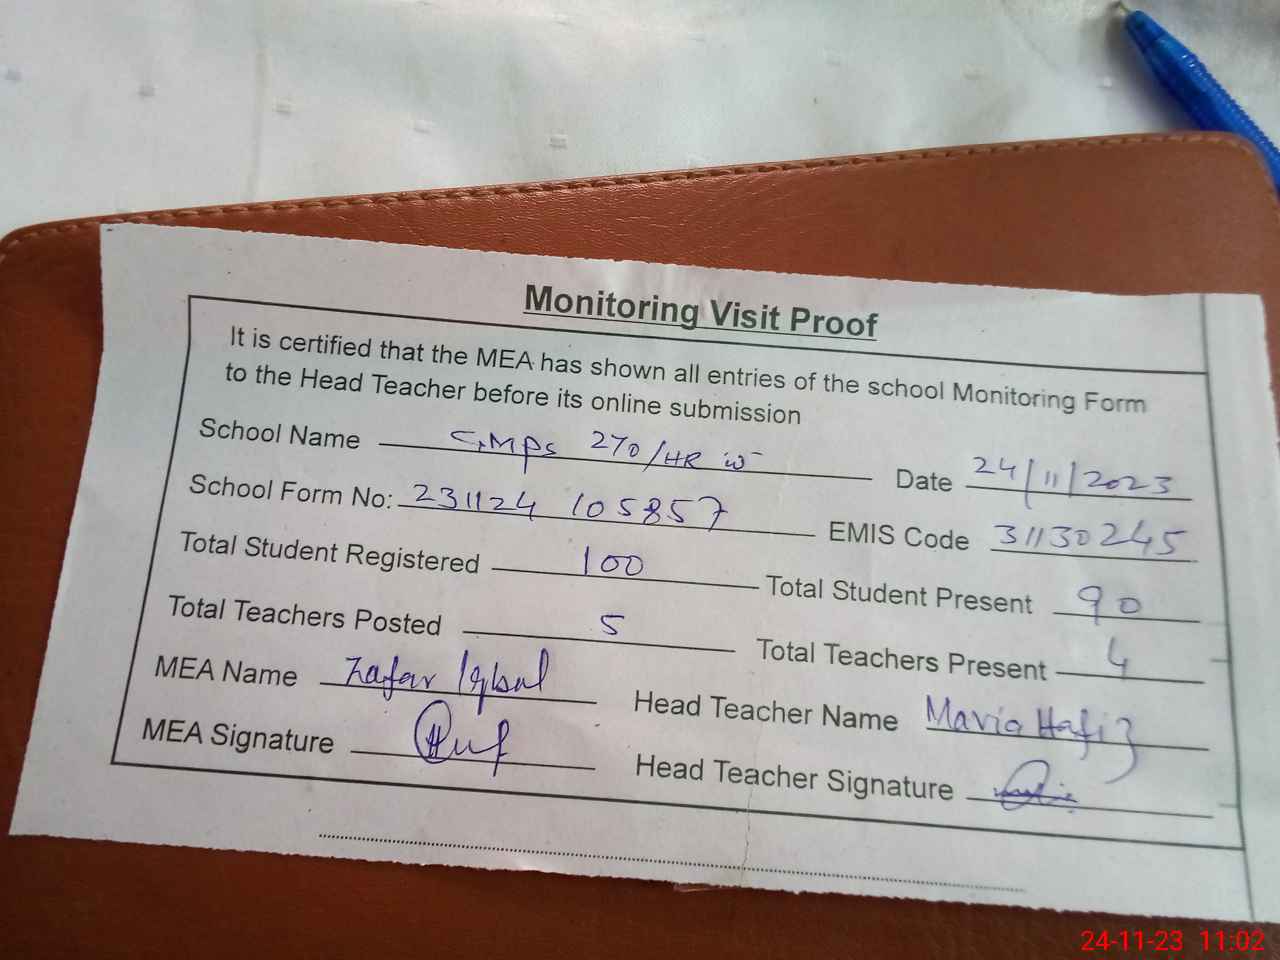 Monitoring Visit Proof
It is certified that the MEA has shown all entries of the school Monitoring Form
to the Head Teacher before its online submission
School Name GMPS 270/HR W Date 24/11/2023
School Form No: 231124 105857 EMIS Code 31130245
Total Student Registered 100 Total Student Present 90
Total Teachers Posted 5 Total Teachers Present 4
MEA Name Zafar Iqbal Head Teacher Name Maria Hafiz
MEA Signature Head Teacher Signature
24-11-23 11:02